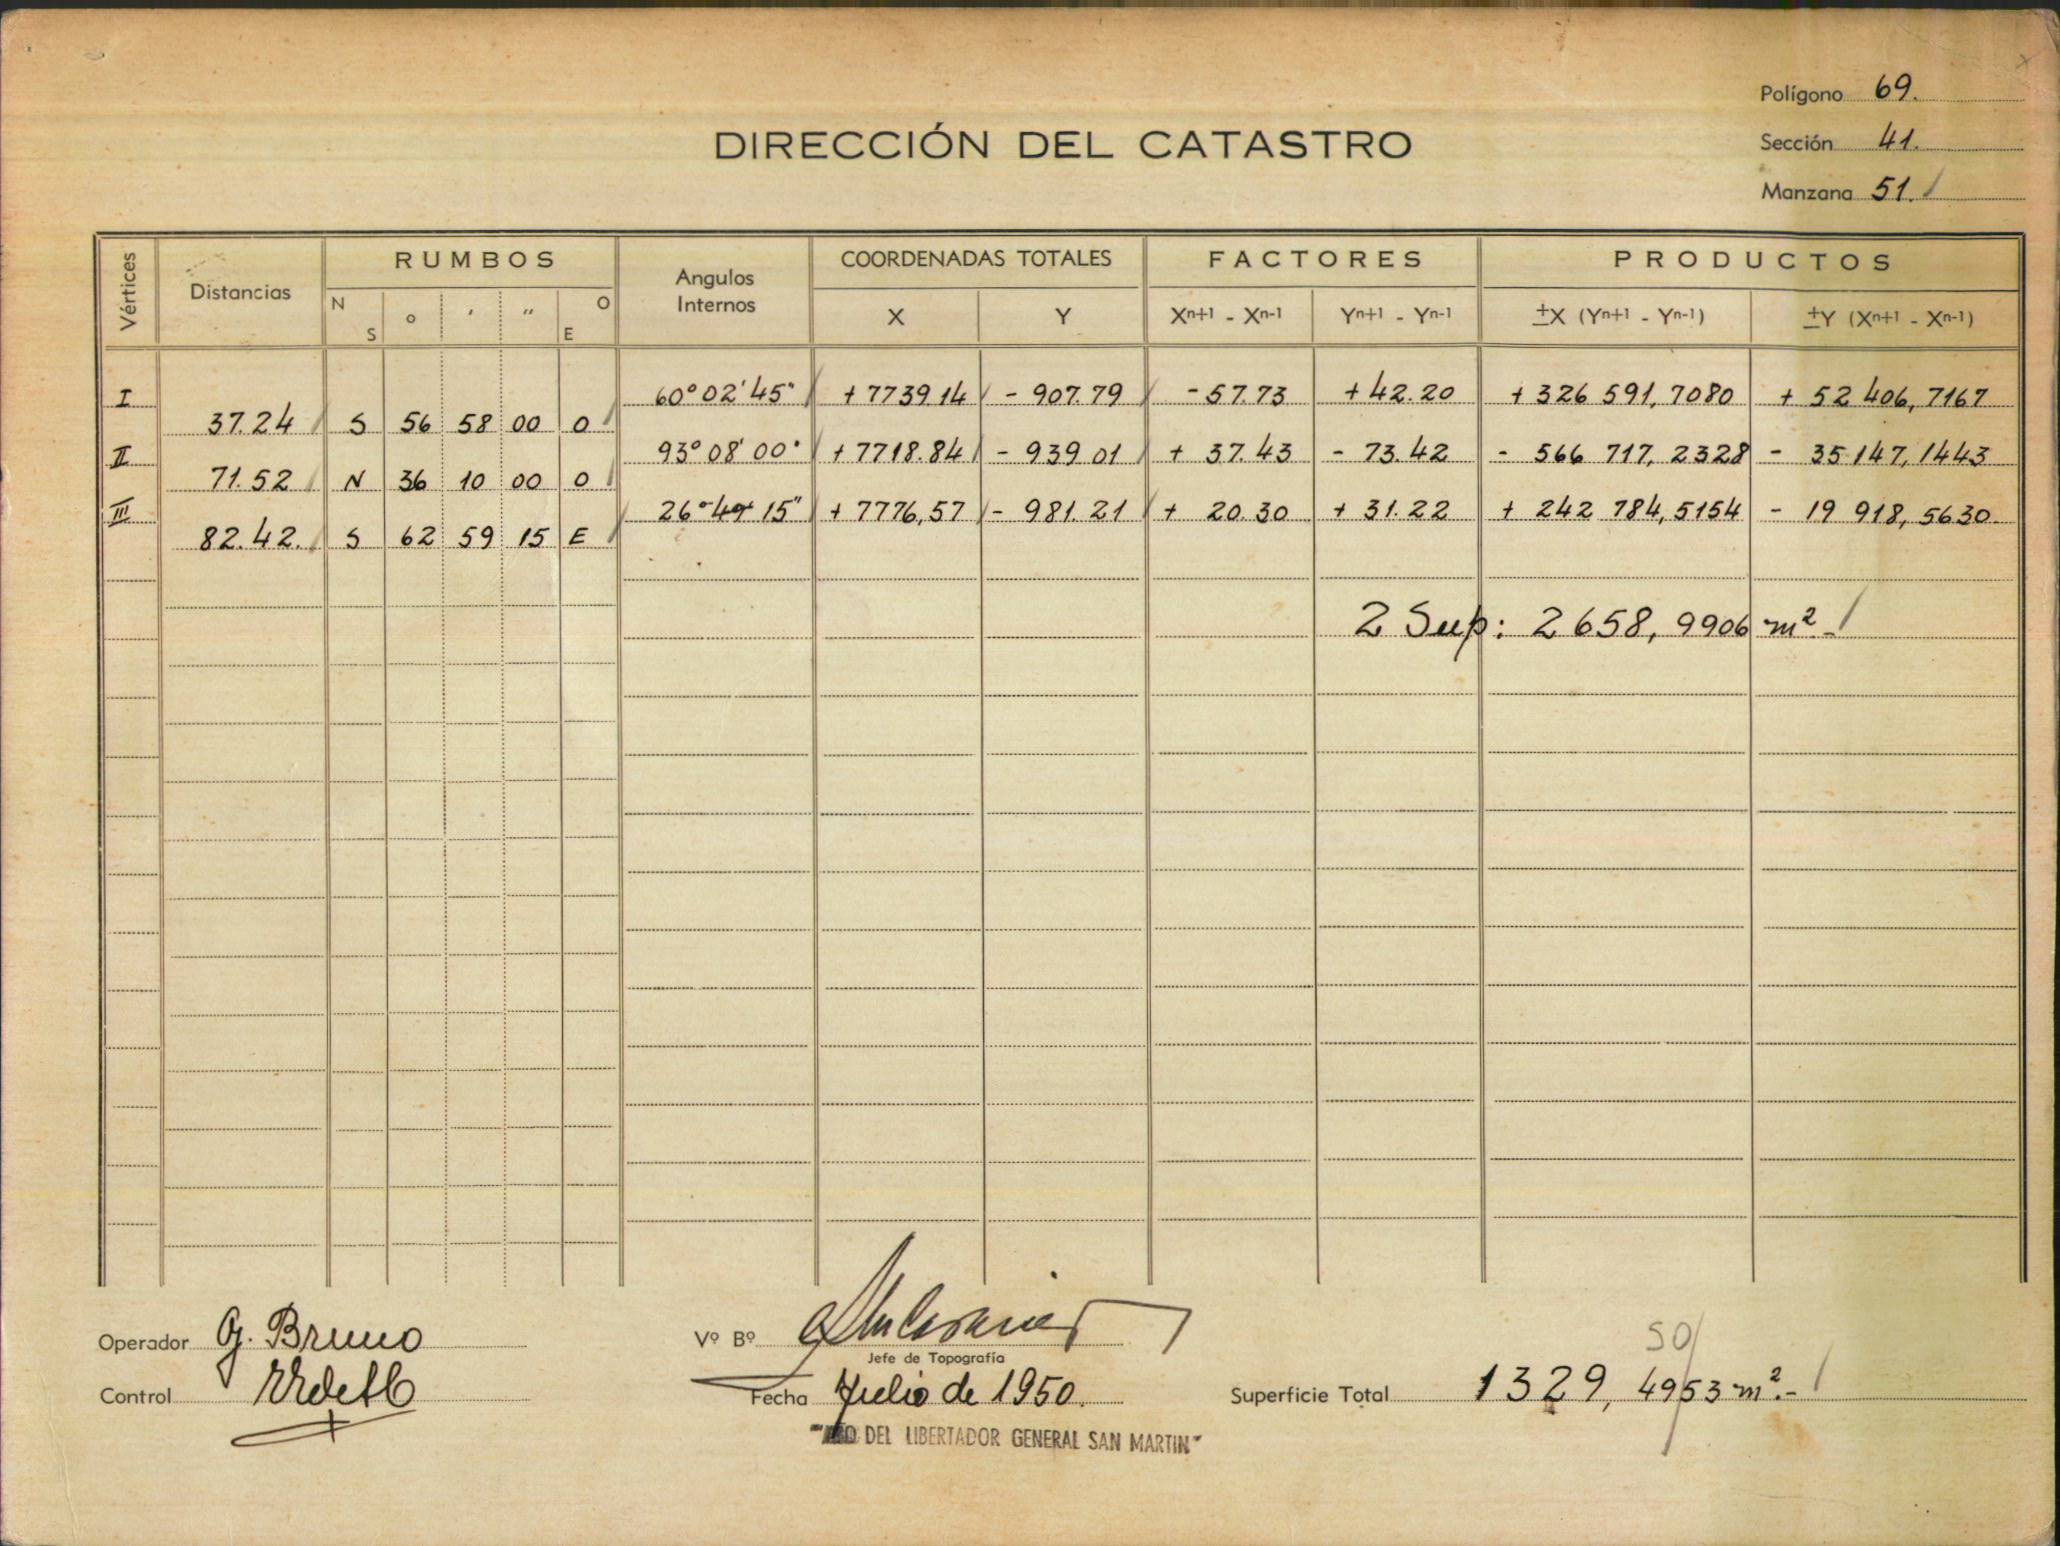 Polígono 69.
DIRECCIÓN DEL CATASTRO
Sección 41.
Manzana 51.
Vértices Distancias RUMBOS Angulos Internos COORDENADAS TOTALES FACTORES PRODUCTOS
N S ° ' " O E X Y Xn+1 - Xn-1 Yn+1 - Yn-1 ±X (Yn+1 - Yn-1) ±Y (Xn+1 - Xn-1)
I 60° 02' 45" + 7739.14 - 907.79 - 57.73 + 42.20 + 326 591,7080 + 52 406,7167
37.24 S 56 58 00 O
II 93° 08' 00" + 7718.84 - 939 01 + 37.43 - 73.42 - 566 717,2328 - 35 147,1443
71.52 N 36 10 00 O
III 26° 49' 15" + 7776,57 - 981.21 + 20.30 + 31.22 + 242 784,5154 - 19 918,5630
82.42. S 62 59 15 E
2 Sup: 2658,9906 m².-
Operador G. Bruno
Vº Bº
Jefe de Topografía
50
Control
Fecha Julio de 1950.
Superficie Total 1329,4953 m².-
DEL LIBERTADOR GENERAL SAN MARTIN"